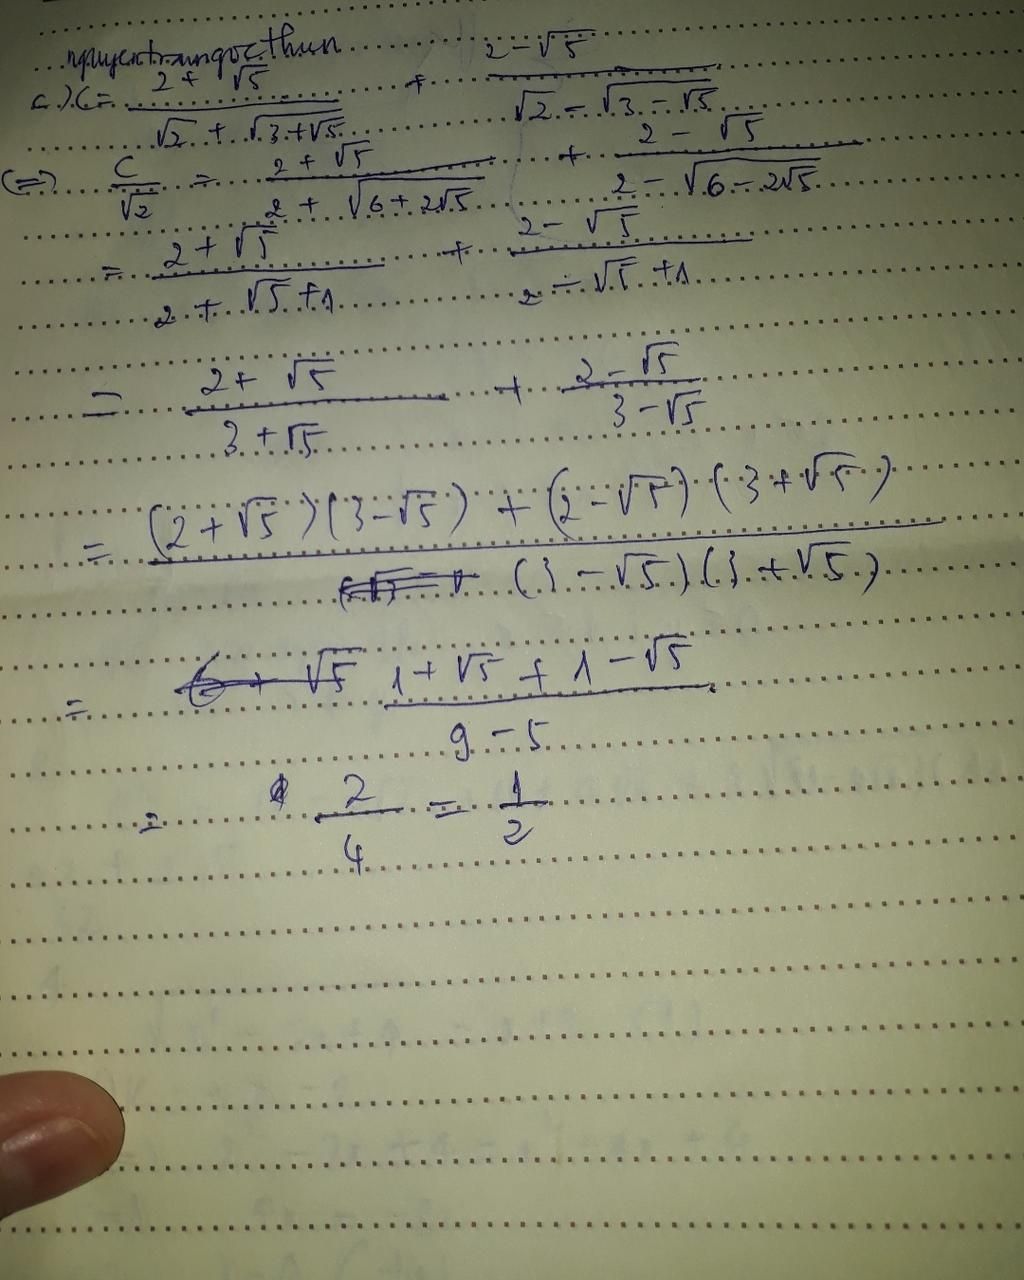 nguyentranngocthun
c) C = (2 + √5)/(√2 + √(3+√5)) + (2 - √5)/(√2 - √(3 - √5))
(=) C/√2 = (2 + √5)/(2 + √(6 + 2√5)) + (2 - √5)/(2 - √(6 - 2√5))
= (2 + √5)/(2 + √5 + 1) + (2 - √5)/(2 - √5 + 1)
= (2 + √5)/(3 + √5) + (2 - √5)/(3 - √5)
= ((2 + √5)(3 - √5) + (2 - √5)(3 + √5))/((3 - √5)(3 + √5))
= (1 + √5 + 1 - √5)/(9 - 5)
= 2/4 = 1/2